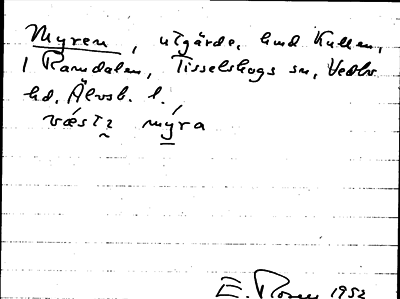 Myren, utgärde, hmd Kullen,
1 Ramdalen, Tisselskogs sn, Vedbo
hd, Älvsb. l.
mýra
1952